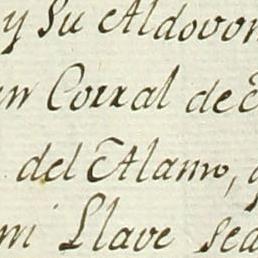 y Su Aldovon
un Corral de
del Alamo,
mi Llave sea